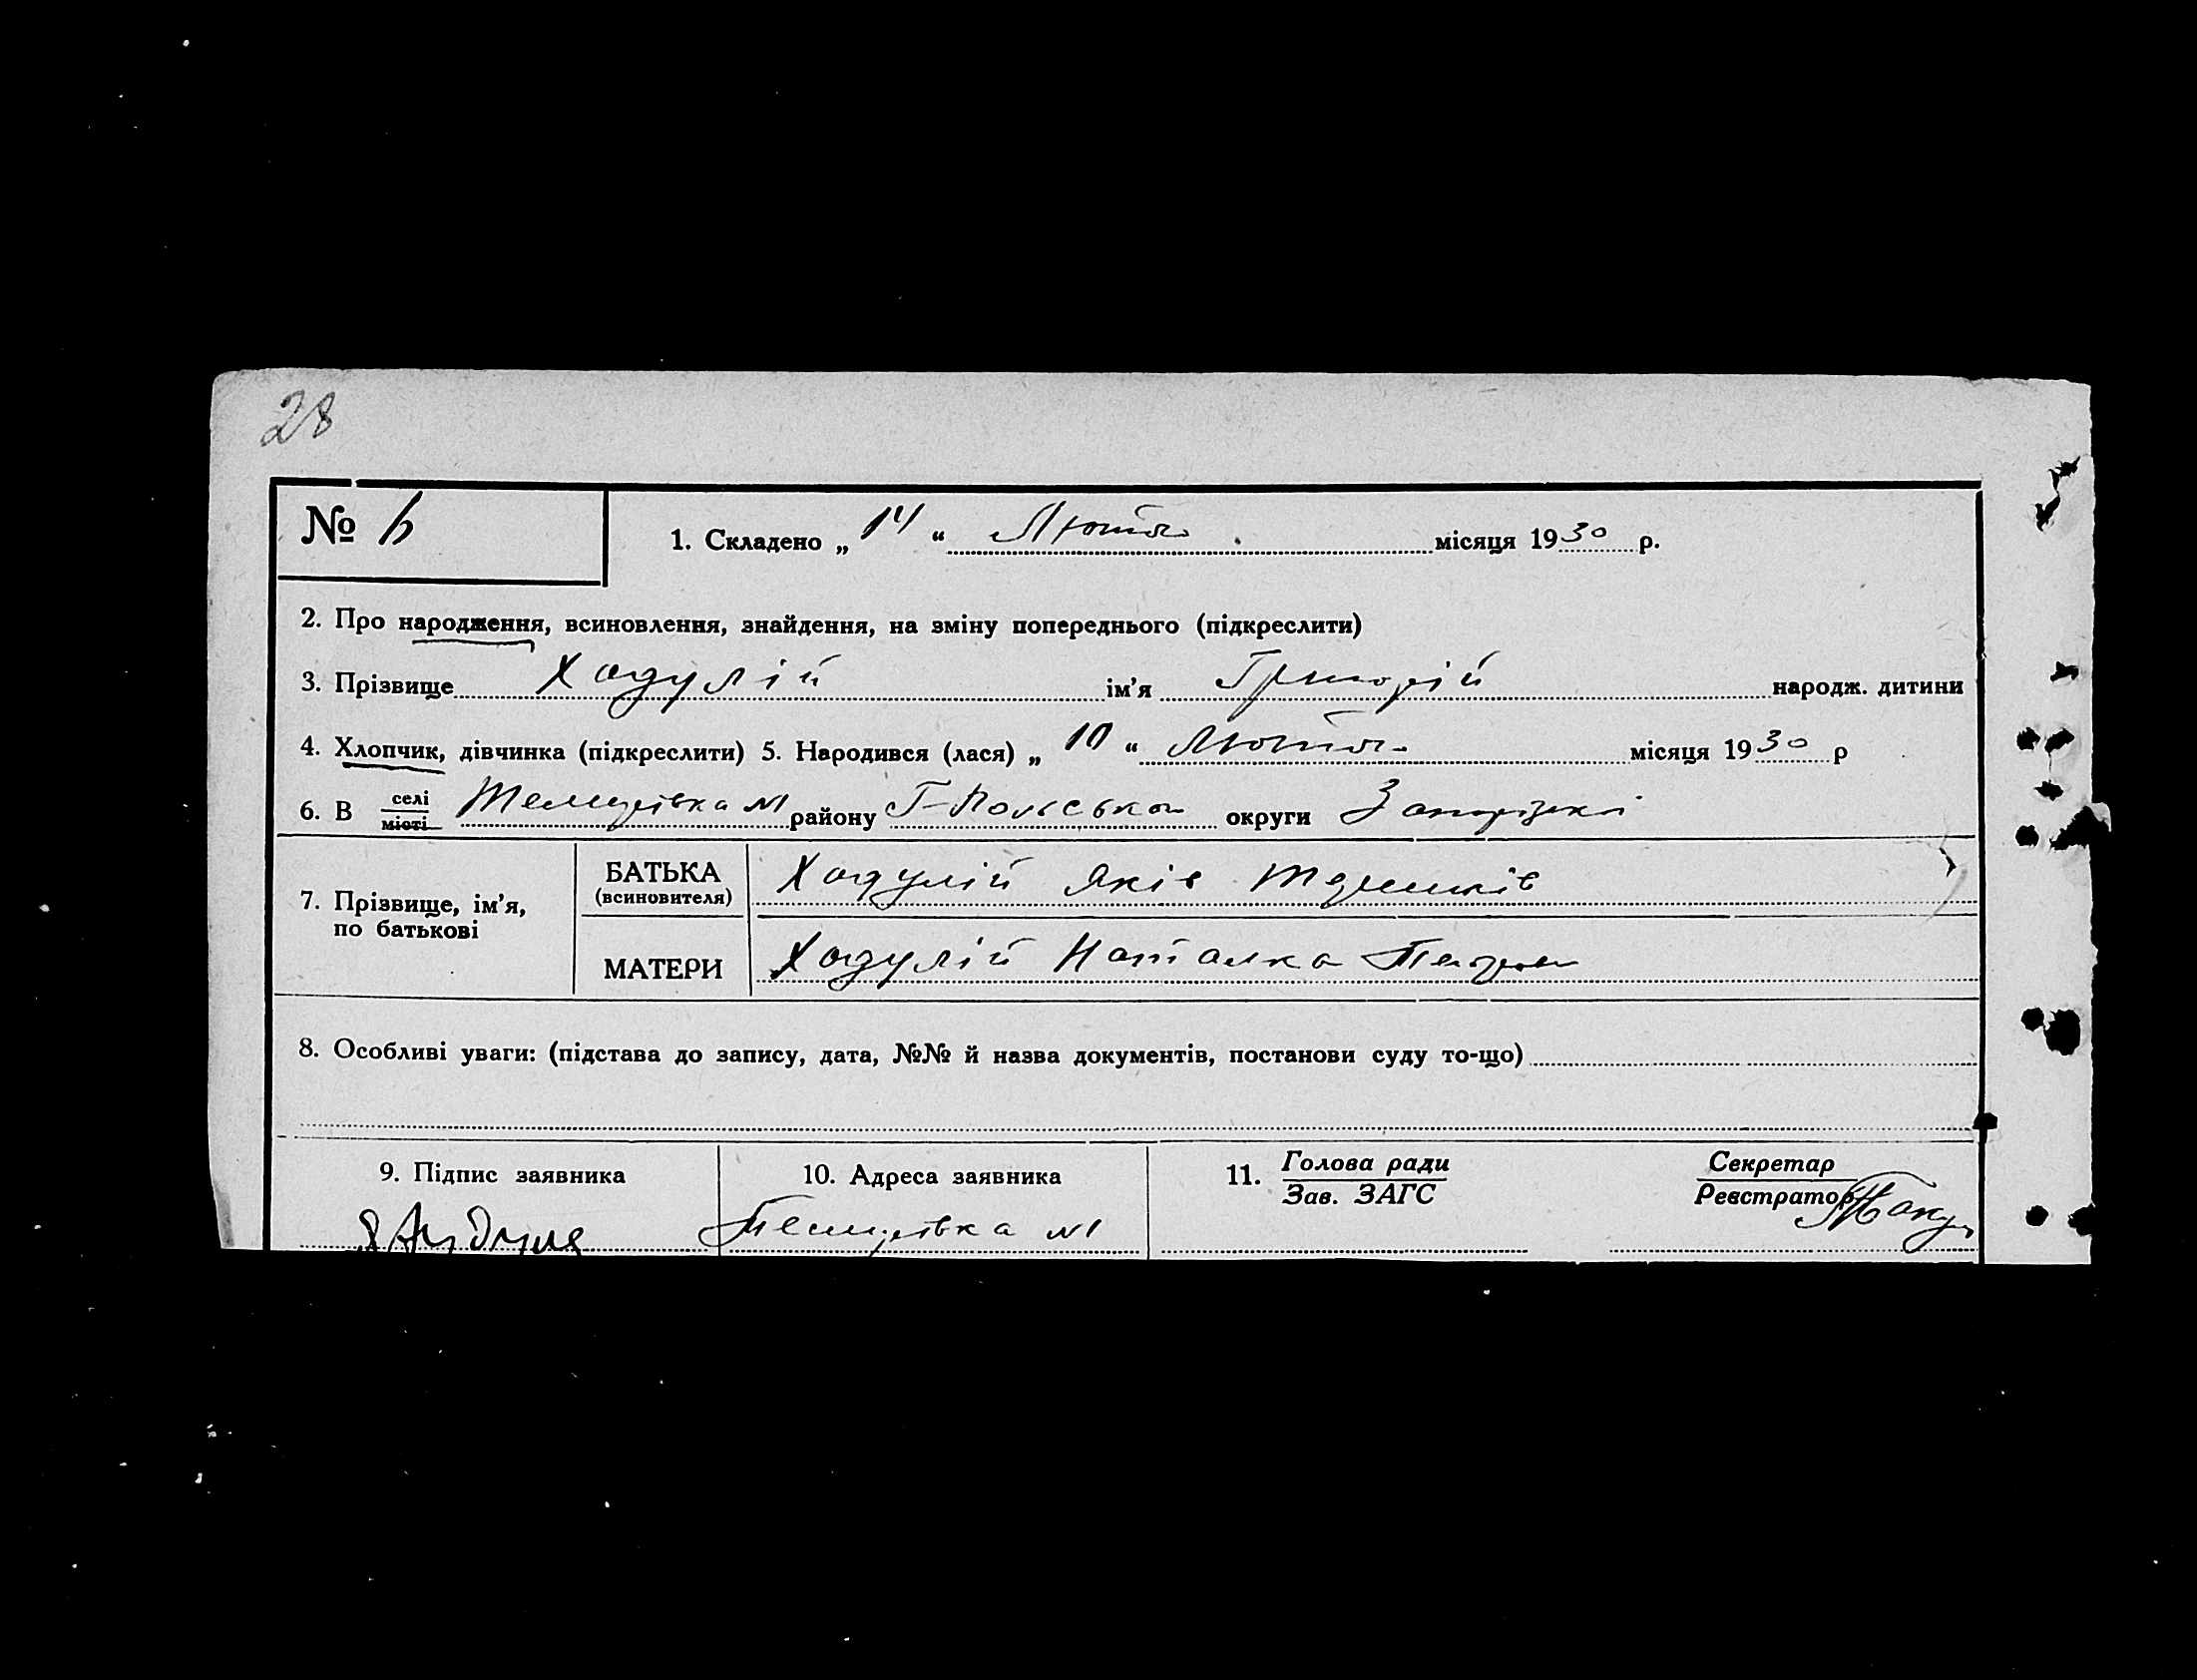 28
№ 6
1. Складено „ 14 “ Лютого місяця 1930 р.
2. Про народження, всиновлення, знайдення, на зміну попереднього (підкреслити)
3. Прізвище Хадулій ім’я Григорій народж. дитини
4. Хлопчик, дівчинка (підкреслити) 5. Народився (лася) „ 10 “ Лютого місяця 1930 р
6. В селі міоті Темирівка №1 району Г-Польського округи Запорізької
7. Прізвище, ім’я, по батькові
БАТЬКА (всиновителя) Хадулій Яків
МАТЕРИ Хадулій Наталка
8. Особливі уваги: (підстава до запису, дата, №№ й назва документів, постанови суду то-що)
9. Підпис заявника
10. Адреса заявника
Темирівка №1
11. Голова ради
Зав. ЗАГС
Секретар
Реєстратор